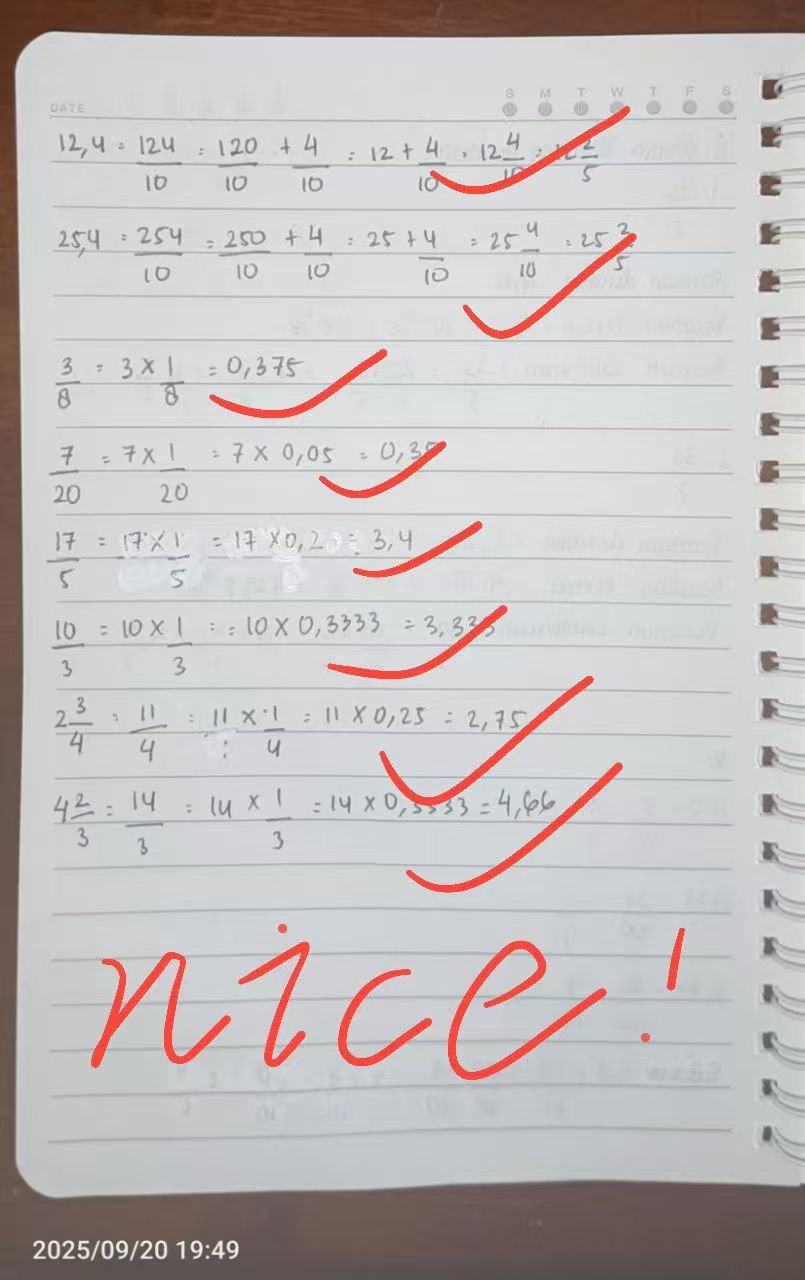 S M T W T F S
DATE
12,4 = 124/10 = 120/10 + 4/10 = 12 + 4/10 = 12 4/10 = 12 2/5
25,4 = 254/10 = 250/10 + 4/10 = 25 + 4/10 = 25 4/10 = 25 2/5
3/8 = 3 × 1/8 = 0,375
7/20 = 7 × 1/20 = 7 × 0,05 = 0,35
17/5 = 17 × 1/5 = 17 × 0,2 = 3,4
10/3 = 10 × 1/3 = = 10 × 0,3333 = 3,333
2 3/4 = 11/4 = 11 × 1/4 = 11 × 0,25 = 2,75
4 2/3 = 14/3 = 14 × 1/3 = 14 × 0,3333 = 4,66
nice!
2025/09/20 19:49